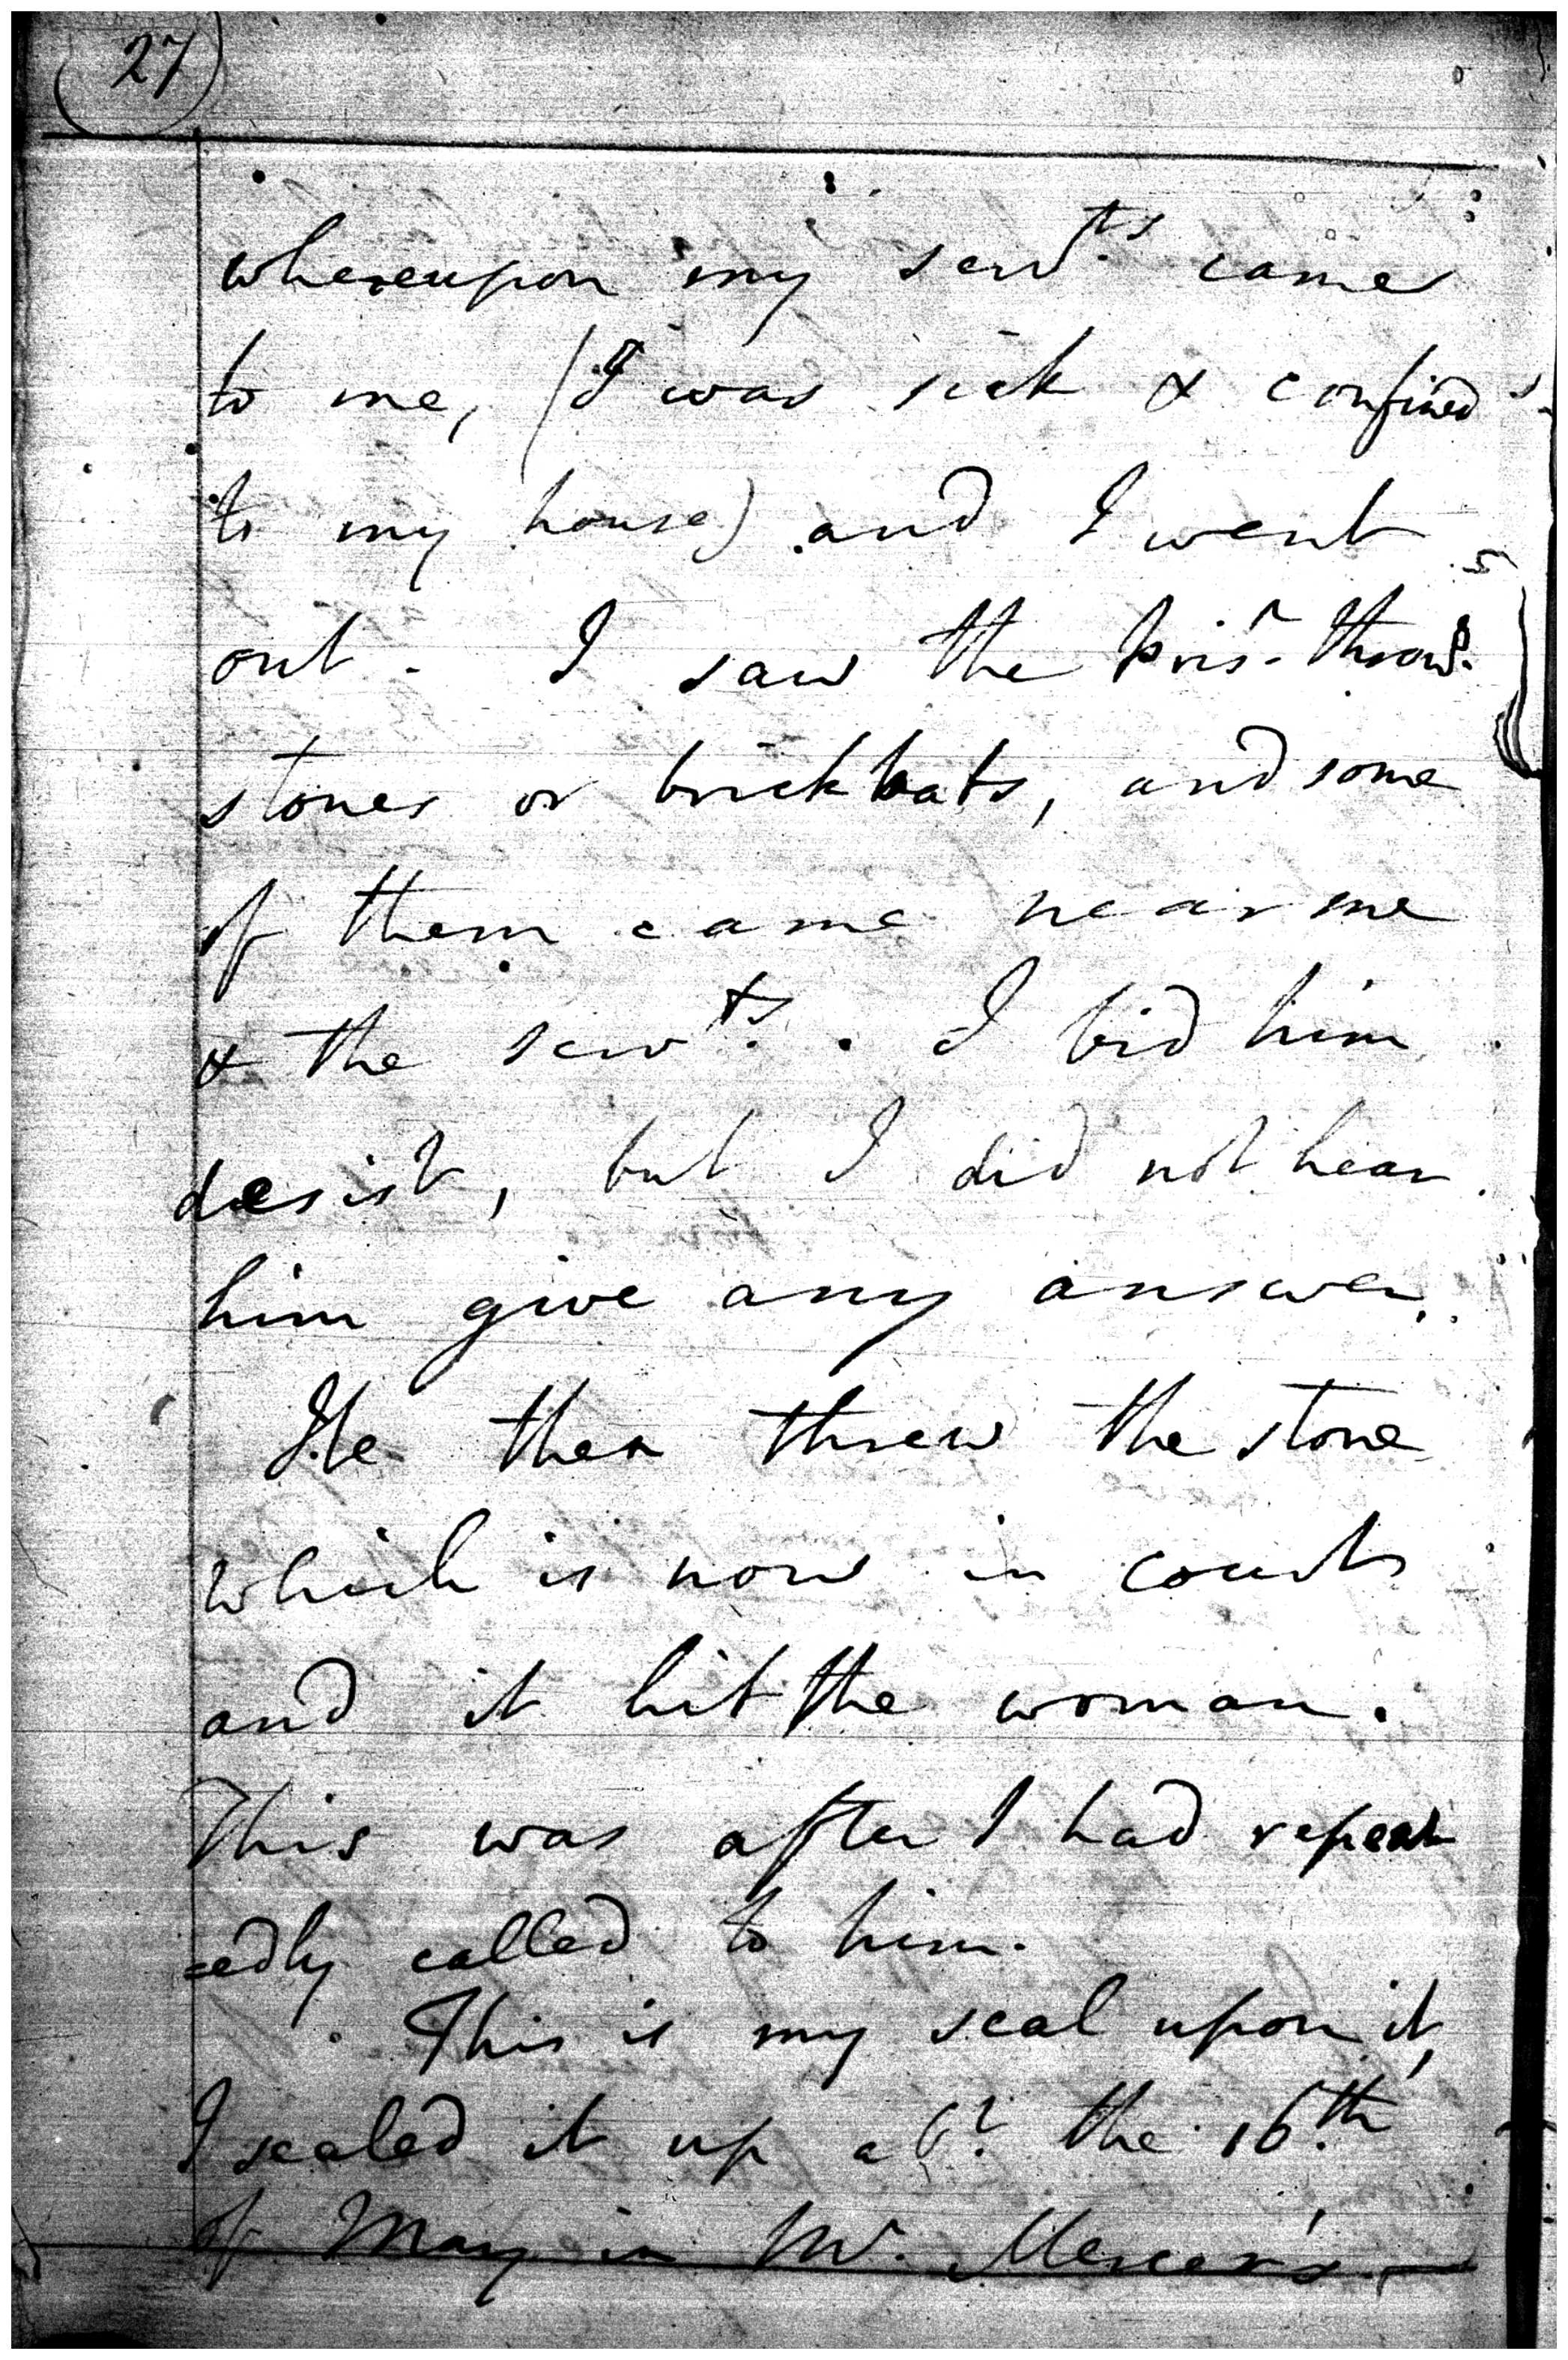 27
whereupon my servts. came
to me, (I was sick & confined
to my house) and I went
out. I saw the prisr. throwg.
stones or brickbats, and some
of them came near me
& the servts.. I bid him
desist, but I did not hear
him give any answer.
He then threw the stone
which is now in court
and it hit the woman.
This was after I had repeat
=edly called to him.
This is my seal upon it,
I sealed it up abt. the 16th.
of May in Mr. Mercer's